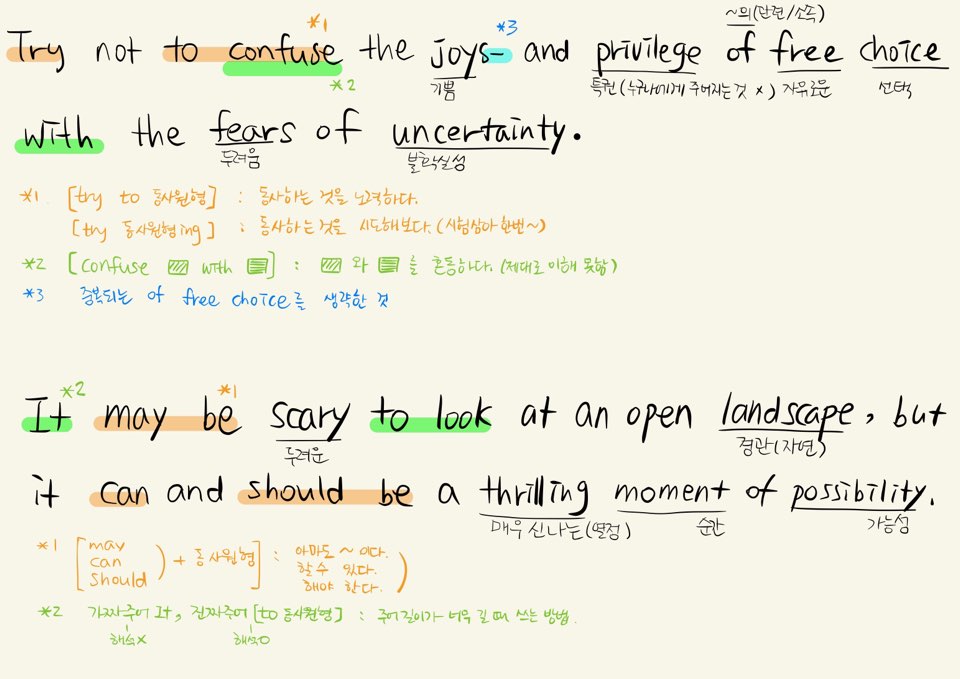 ~의(관련/소속)
*1 *3
Try not to confuse the joys- and privilege of free choice
*2 기쁨 특권(누구나에게 주어지는 것 x) 자유로운 선택
with the fears of uncertainty.
두려움 불확실성
*1. [try to 동사원형] : 동사하는 것을 노력하다.
[try 동사원형ing] : 동사하는 것을 시도해보다. (시험삼아 한번~)
*2 [confuse with ] : 와 를 혼동하다. (제대로 이해 못함)
*3 중복되는 of free choice를 생략한 것
*2 *1
It may be scary to look at an open landscape, but
두려운 경관(자연)
it can and should be a thrilling moment of possibility.
매우 신나는(열정) 순간 가능성
*1 [may can should) + 동사원형] : 아마도 ~이다.
할 수 있다.
해야 한다. )
*2 가짜주어 It, 진짜주어 [to 동사원형] : 주어 길이가 너무 길 때 쓰는 방법.
해석x 해석o